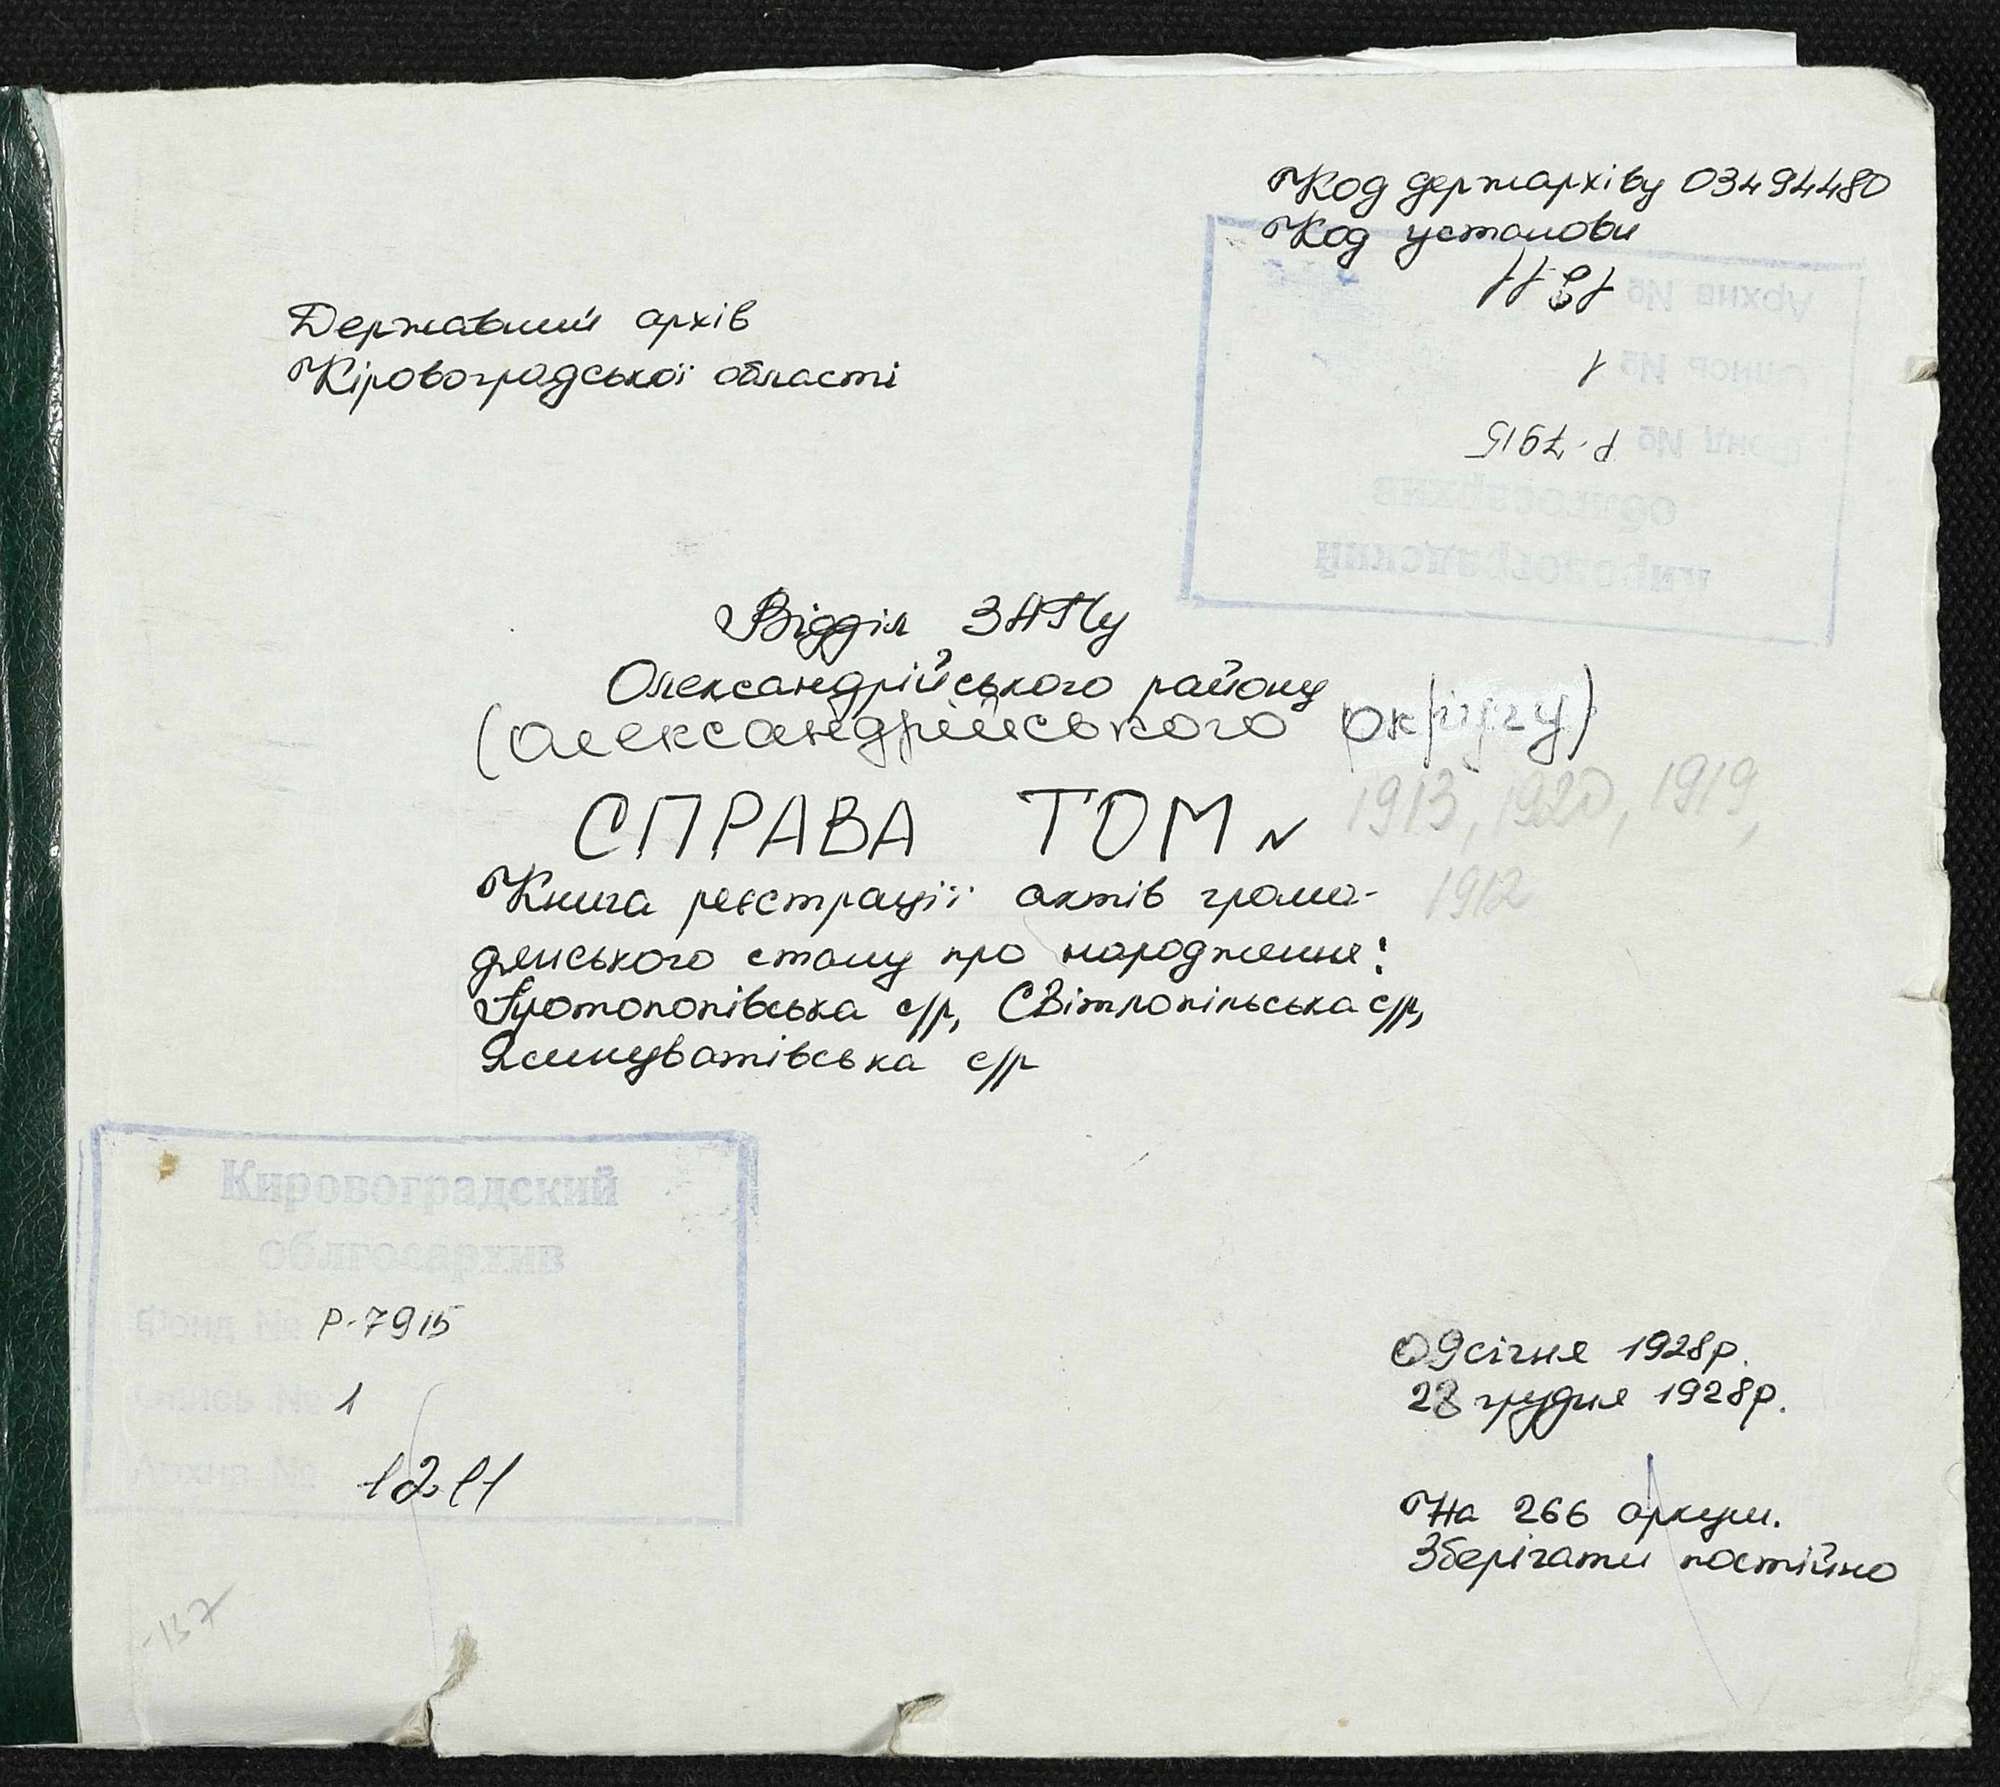 Код держархіву 03494480
Код установи
Державний архів
Кіровоградської області
Архив №
1211
Опись №
1
Фонд № Р-7915
облгосархив
Кировоградский
Відділ ЗАГСу
Олександрійського району
(Олександрійського округу)
СПРАВА ТОМ N
1913, 1920, 1919,
1912
Книга реєстрації актів грома-
дянського стану про народження:
Протопопівська с/р, Світлопільська с/р,
Ясинуватівська с/р
Кировоградский
облгосархив
Фонд № Р-7915
Опись № 1
Архив № 1211
09 січня 1928р.
28 грудня 1928р.
На 266 аркуш.
Зберігати постійно
-137